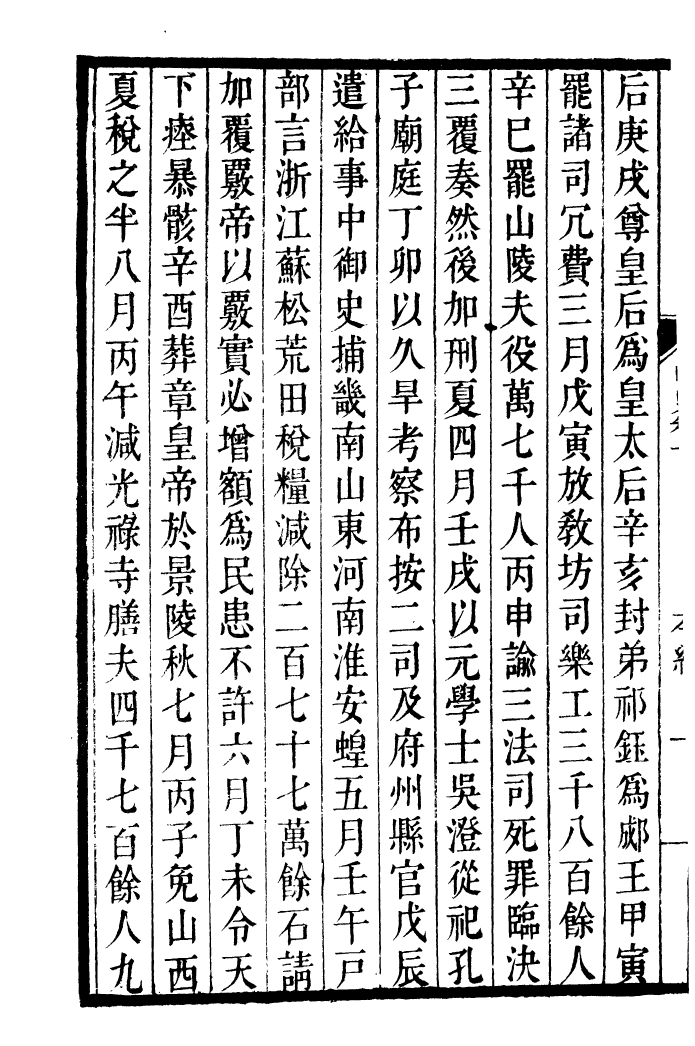 后庚戌尊皇后爲皇太后辛亥封弟祁鈺爲郕王甲寅
罷諸司冗費三月戊寅放教坊司樂工三千八百餘人
辛巳罷山陵夫役萬七千人丙申諭三法司死罪臨決
三覆奏然後加刑夏四月壬戌以元學士吳澄從祀孔
子廟庭丁卯以久旱考察布按二司及府州縣官戊辰
遣給事中御史捕畿南山東河南淮安蝗五月壬午戸
部言浙江蘇松荒田稅糧減除二百七十七萬餘石請
加覆覈帝以覈實必增額爲民患不許六月丁未令天
下瘞暴骸辛酉葬章皇帝於景陵秋七月丙子免山西
夏稅之半八月丙午減光祿寺膳夫四千七百餘人九